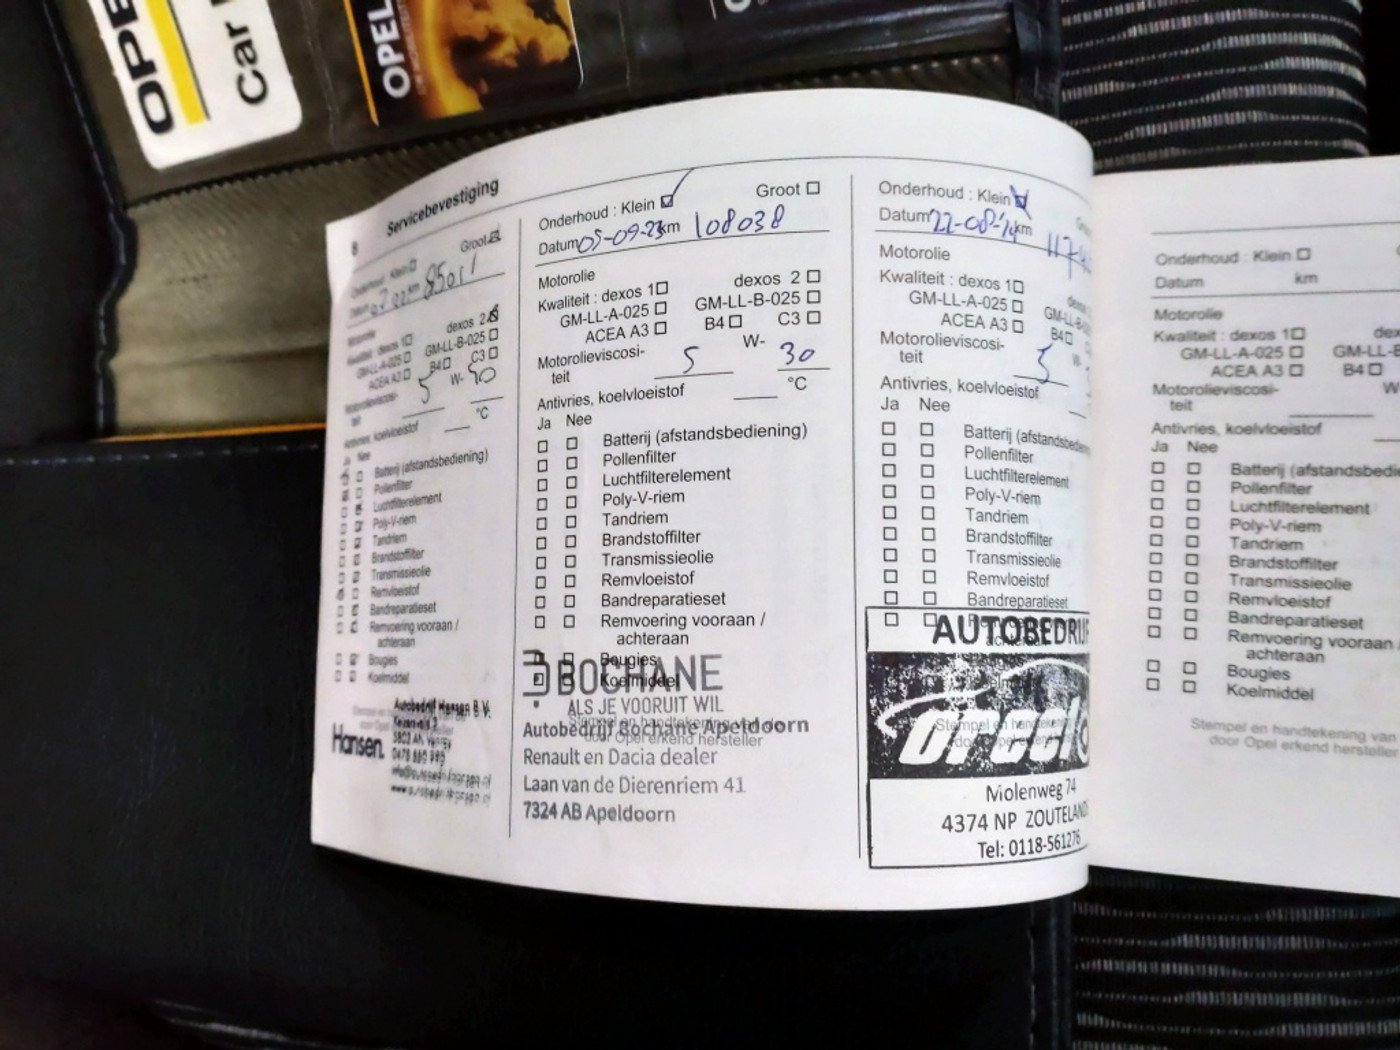 OPE
Car
OPEL
8 Servicebevestiging
Onderhoud : Klein ☐ Groot ☒
Datum km 85011
Motorolie
Kwaliteit : dexos 1 ☐ dexos 2 ☒
GM-LL-A-025 ☐ GM-LL-B-025 ☐
ACEA A3 ☐ B4 ☐ C3 ☐
Motorolieviscosi-
teit 5 W-
Antivries, koelvloeistof °C
Ja Nee
Batterij (afstandsbediening)
Pollenfilter
Luchtfilterelement
Poly-V-riem
Tandriem
Brandstoffilter
Transmissieolie
Remvloeistof
Bandreparatieset
Remvoering vooraan /
achteraan
Bougies
Koelmiddel
Autobedrijf Hansen B.V.
Hansen.
Onderhoud : Klein ☑ Groot ☐
Datum 05-09-23 km 108038
Motorolie
Kwaliteit : dexos 1 ☐ dexos 2 ☐
GM-LL-A-025 ☐ GM-LL-B-025 ☐
ACEA A3 ☐ B4 ☐ C3 ☐
Motorolieviscosi-
teit 5 W- 30
Antivries, koelvloeistof °C
Ja Nee
☐ ☐ Batterij (afstandsbediening)
☐ ☐ Pollenfilter
☐ ☐ Luchtfilterelement
☐ ☐ Poly-V-riem
☐ ☐ Tandriem
☐ ☐ Brandstoffilter
☐ ☐ Transmissieolie
☐ ☐ Remvloeistof
☐ ☐ Bandreparatieset
☐ ☐ Remvoering vooraan /
achteraan
☐ ☐ Bougies
☐ ☐ Koelmiddel
BOCHANE
ALS JE VOORUIT WIL
Stempel en handtekening van de
door Opel erkend hersteller
Autobedrijf Bochane Apeldoorn
Renault en Dacia dealer
Laan van de Dierenriem 41
7324 AB Apeldoorn
Onderhoud : Klein ☒
Datum 22-08-24 km 117
Motorolie
Kwaliteit : dexos 1 ☐
GM-LL-A-025 ☐ GM-LL-B
ACEA A3 ☐ B4 ☐
Motorolieviscosi-
teit 5 W-
Antivries, koelvloeistof
Ja Nee
☐ ☐ Batterij (afstandsbedien
☐ ☐ Pollenfilter
☐ ☐ Luchtfilterelement
☐ ☐ Poly-V-riem
☐ ☐ Tandriem
☐ ☐ Brandstoffilter
☐ ☐ Transmissieolie
☐ ☐ Remvloeistof
☐ ☐ Bandreparatieset
AUTOBEDRIJF
Stempel en handteken
Molenweg 74
4374 NP ZOUTELAND
Tel: 0118-561276
Onderhoud : Klein ☐
Datum km
Motorolie
Kwaliteit : dexos 1 ☐ dex
GM-LL-A-025 ☐ GM-LL-B
ACEA A3 ☐ B4 ☐
Motorolieviscosi- W
teit
Antivries, koelvloeistof
Ja Nee
☐ ☐ Batterij (afstandsbedie
☐ ☐ Pollenfilter
☐ ☐ Luchtfilterelement
☐ ☐ Poly-V-riem
☐ ☐ Tandriem
☐ ☐ Brandstoffilter
☐ ☐ Transmissieolie
☐ ☐ Remvloeistof
☐ ☐ Bandreparatieset
☐ ☐ Remvoering vooraan
achteraan
☐ ☐ Bougies
☐ ☐ Koelmiddel
Stempel en handtekening van
door Opel erkend hersteller